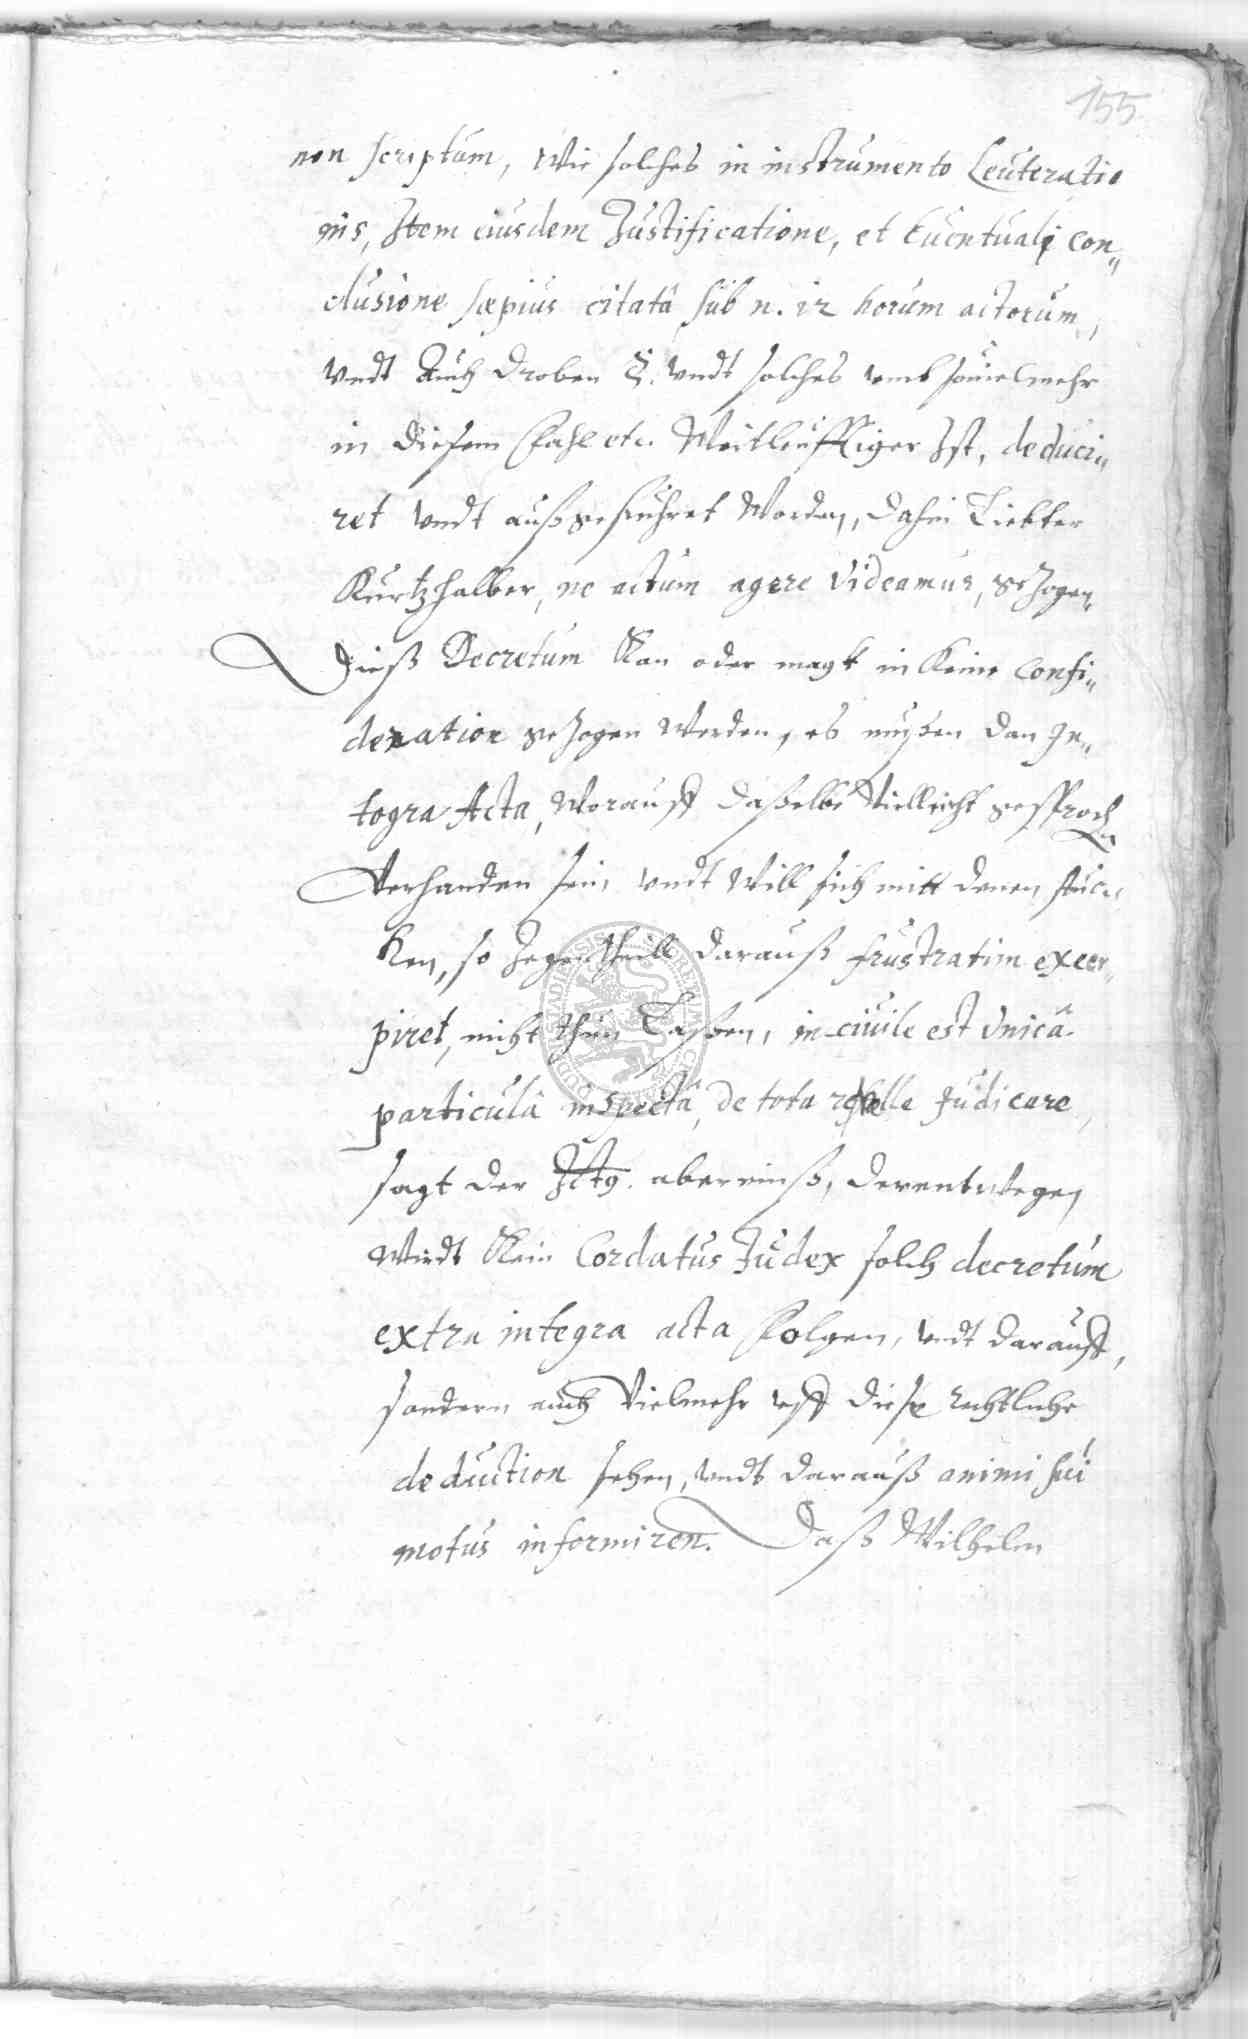 155
non scriptum, Wie solches in instrumento Leuteratio
nis, Item eiusdem Justificatione, et Euentuali con„
clusione sæpius citatâ sub n. 12 horum actorum,
Vndt Auch droben §. Vndt solches vmb souielmehr
in diesem Fahl etc. Weitleufftiger Ist, deduci„
ret Vndt außgeführet Worden, dahin Liebter
Kurtzhalber, ne actum agere Videamur, gezogen
Dieß Decretum Kan oder magk in Keine Consi„
deration gezogen Werden, es müßen dan In„
tegra Acta, Worauff daßelbe Vielleicht gesproch
en
Verhanden sein, Vndt Will sich mitt denen stuc„
Ken, so Jegentheill darauß frustratim excer„
piret, nicht thun Laßen, in ciuile est Vnicâ
particulâ inspectâ, de tota re velle Judicare,
sagt der JCtg. abereinß, derentwegen
Wirdt Kein Cordatus Judex solch decretum
extra integra acta Folgen, Vndt darauff,
sondern auch Vielmehr vff diese rechtliche
deduction sehen, Vndt darauß animi sui
motus informiren. Daß Wilhelm